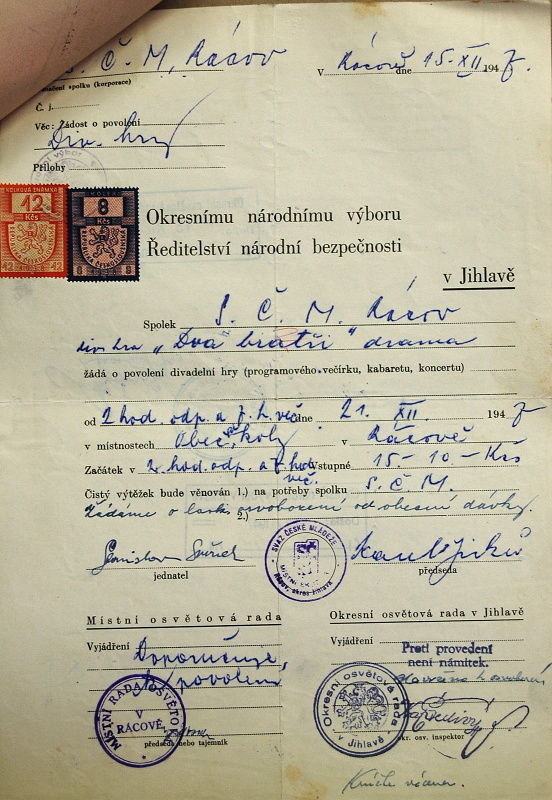 S. Č. M, Rácov
označení spolku (korporace)
V Rácově dne 15-XII 1947.
Č. j.
Věc: Žádost o povolení
Div. hry
Přílohy
KOLKOVÁ ZNÁMKA
12
Kčs
REPUBLIKA ČESKOSLOVENSKÁ
12 12
8
Kčs
REPUBLIKA ČESKOSLOVENSKÁ
8 8
Okresnímu národnímu výboru
Ředitelství národní bezpečnosti
v Jihlavě
Spolek S. Č. M. Rácov
div. hra „Dva bratři" drama
žádá o povolení divadelní hry (programového večírku, kabaretu, koncertu)
od 2 hod. odp. a 7. h. več dne 21. XII 1947
v místnostech Obec. školy v Rácově
Začátek v 2. hod. odp. a 7 hod več. Vstupné 15 - 10 - Kčs
Čistý výtěžek bude věnován 1.) na potřeby spolku S. Č. M.
2.) Žádáme o laské osvobození od obecní dávky.
Stanislav
jednatel
SVAZ ČESKÉ MLÁDEŽE
MÍSTNÍ
Rácov, okres Jihlava
Karel Jirků
předseda
Místní osvětová rada
Vyjádření
Doporučuje,
povolení
MÍSTNÍ RADA OSVĚTOVÁ
V
RÁCOVĚ
předseda nebo tajemník
Okresní osvětová rada v Jihlavě
Vyjádření
Proti provedení
není námitek.
Okresní osvětová rada
v Jihlavě
okr. osv. inspektor